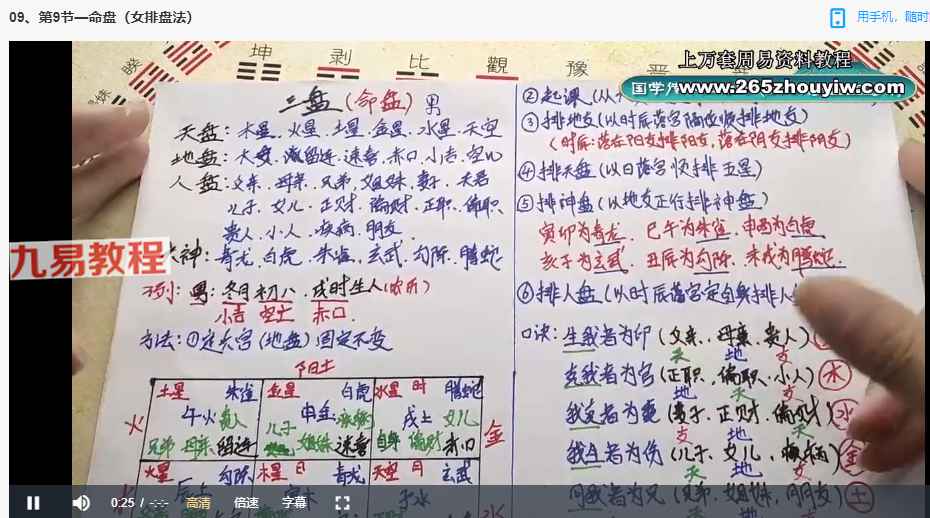 09、第9节—命盘（女排盘法）
用手机，随时
坤 剥 比 觀 豫 晋
睽
上万套周易资料教程
国学
www.265zhouyiw.com
九易教程
三盘(命盘) 男
天盘：木星.火星.土星.金星.水星.天空
地盘：大安.留连.速喜.赤口.小吉.空亡
人盘：父亲.母亲.兄弟.姐妹.妻子.夫君
儿子.女儿.正财.偏财.正职.偏职
贵人.小人.疾病.朋友.
神：青龙.白虎.朱雀.玄武.勾陈.腾蛇
例：男：冬月初八.戌时生人(农历)
小吉 空亡 赤口
方法：①定六宫(地盘)固定不变
阳土
土星 朱雀 金星 白虎 水星 时 腾蛇
火 午火 贵人 儿子 申金 戌土 女儿 金
兄弟 母亲 留连 姐妹 速喜 自身 偏财 赤口
火星 勾陈 木星 日 青龙 天空 月 玄武
子水
水
②起课(从
③排地支(以时辰落宫隔位顺排地支)
(时辰：落在阳支排阳支，落在阴支排阴支)
④排天盘(以日落宫顺排五星)
⑤排神盘(以地支五行排神盘)
寅卯为青龙 巳午为朱雀 申酉为白虎
亥子为玄武 丑辰为勾陈 未戌为腾蛇
⑥排人盘(以时辰落宫定自身排人
口诀：生我者为印(父亲.母亲.贵人)
天 地 支
克我者为官(正职.偏职.小人) 水
地 天 支
我克者为妻(妻子.正财.偏财) 水
支 地 天
我生者为伤(儿子.女儿.疾病) 金
天 地 支
同我者为兄(兄弟.姐妹.朋友) 土
0:25 / -:-
高清
倍速
字幕